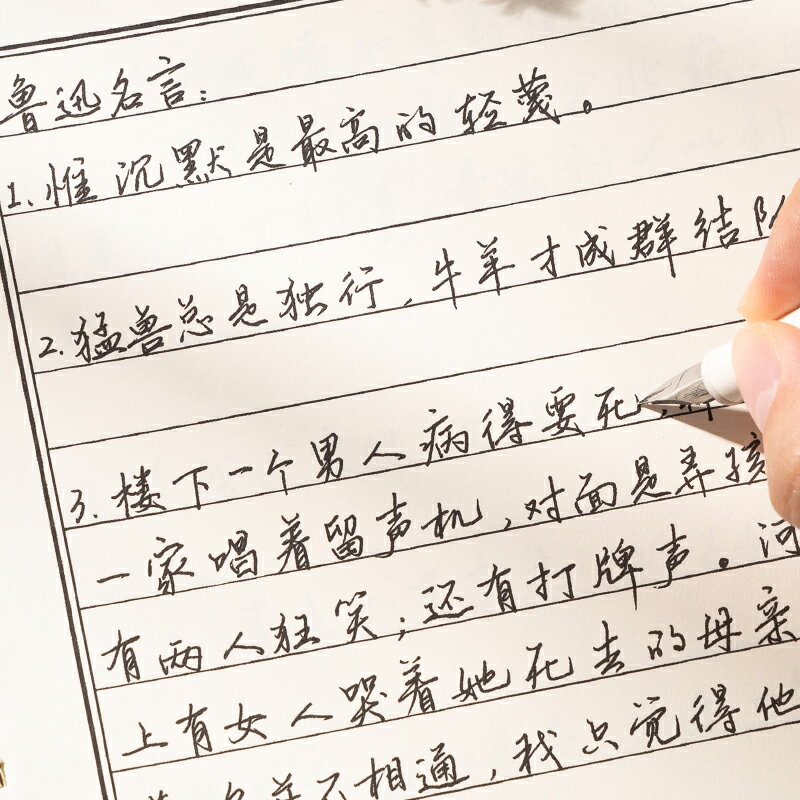 鲁迅名言：
1.惟沉默是最高的轻蔑。
2.猛兽总是独行，牛羊才成群结队
3.楼下一个男人病得要死，
一家唱着留声机，对面是弄孩
有两人狂笑；还有打牌声。河
上有女人哭着她死去的母亲
不相通，我只觉得他